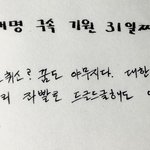 재명 구속 기원 31일째
취소? 꿈도 야무지다. 대한
리 좌빨로 드글드글해도